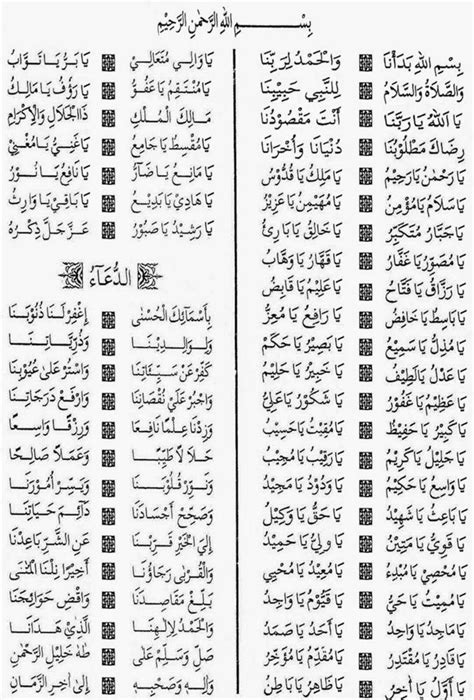 بِسْمِ اللهِ الرَّحْمٰنِ الرَّحِيْمِ
بِسْمِ اللهِ بَدَأْنَا وَالْحَمْدُ لِرَبِّنَا
وَالصَّلَاةُ وَالسَّلَامُ لِلنَّبِيِّ حَبِيْبِنَا
يَا اَللهُ يَا رَبَّنَا أَنْتَ مَقْصُوْدُنَا
رِضَاكَ مَطْلُوْبُنَا دُنْيَانَا وَأُخْرَانَا
يَا رَحْمٰنُ يَا رَحِيْمُ يَا مَلِكُ يَا قُدُّوْسُ
يَا سَلَامُ يَا مُؤْمِنُ يَا مُهَيْمِنُ يَا عَزِيْزُ
يَا جَبَّارُ مُتَكَبِّرُ يَا خَالِقُ يَا بَارِئُ
يَا مُصَوِّرُ يَا غَفَّارُ يَا قَهَّارُ يَا وَهَّابُ
يَا رَزَّاقُ يَا فَتَّاحُ يَا عَلِيْمُ يَا قَابِضُ
يَا بَاسِطُ يَا خَافِضُ يَا رَافِعُ يَا مُعِزُّ
يَا مُذِلُّ يَا سَمِيْعُ يَا بَصِيْرُ يَا حَكَمُ
يَا عَدْلُ يَا لَطِيْفُ يَا خَبِيْرُ يَا حَلِيْمُ
يَا عَظِيْمُ يَا غَفُوْرُ يَا شَكُوْرُ يَا عَلِيُّ
يَا كَبِيْرُ يَا حَفِيْظُ يَا مُقِيْتُ يَا حَسِيْبُ
يَا جَلِيْلُ يَا كَرِيْمُ يَا رَقِيْبُ يَا مُجِيْبُ
يَا وَاسِعُ يَا حَكِيْمُ يَا وَدُوْدُ يَا مَجِيْدُ
يَا بَاعِثُ يَا شَهِيْدُ يَا حَقُّ يَا وَكِيْلُ
يَا قَوِيُّ يَا مَتِيْنُ يَا وَلِيُّ يَا حَمِيْدُ
يَا مُحْصِيْ يَا مُبْدِءُ يَا مُعِيْدُ يَا مُحْيِيْ
يَا مُمِيْتُ يَا حَيُّ يَا قَيُّوْمُ يَا وَاجِدُ
يَا مَاجِدُ يَا وَاحِدُ يَا أَحَدُ يَا صَمَدُ
يَا قَادِرُ يَا مُقْتَدِرُ يَا مُقَدِّمُ يَا مُؤَخِّرُ
يَا أَوَّلُ يَا اٰخِرُ يَا ظَاهِرُ يَا بَاطِنُ
يَا وَالِيْ مُتَعَالِيْ يَا بَرُّ يَا تَوَّابُ
يَا مُنْتَقِمُ يَا عَفُوُّ يَا رَؤُفُ يَا مَالِكُ
مَالِكَ الْمُلْكِ ذَا الْجَلَالِ وَالْإِكْرَامِ
يَا مُقْسِطُ يَا جَامِعُ يَا غَنِيُّ يَا مُغْنِيْ
يَا مَانِعُ يَا ضَآرُّ يَا نَافِعُ يَا نُوْرُ
يَا هَادِيْ يَا بَدِيْعُ يَا بَاقِيْ يَا وَارِثُ
يَا رَشِيْدُ يَا صَبُوْرُ عَزَّ جَلَّ ذِكْرُهُ
الدُّعَآءُ
بِأَسْمَائِكَ الْحُسْنٰى إِغْفِرْ لَنَا ذُنُوْبَنَا
وَلِوَالِدِيْنَا وَذُرِّيَّاتِنَا
كَفِّرْ عَنْ سَيِّئَاتِنَا وَاسْتُرْ عَلَى عُيُوْبِنَا
وَاجْبُرْ عَلَى نُقْصَانِنَا وَارْفَعْ دَرَجَاتِنَا
وَزِدْنَا عِلْمًا نَافِعًا وَرِزْقًا وَاسِعًا
حَلَالًا طَيِّبًا وَعَمَلًا صَالِحًا
وَنَوِّرْ قُلُوْبَنَا وَيَسِّرْ أُمُوْرَنَا
وَصَحِّحْ أَجْسَادَنَا دَآئِمَ حَيَاتِنَا
إِلَى الْخَيْرِ قَرِّبْنَا عَنِ الشَّرِّ بَاعِدْنَا
وَالْقُرْبٰى رَجَاؤُنَا أَخِيْرًا نِلْنَا الْمُنٰى
بَلِّغْ مَقَاصِدَنَا وَاقْضِ حَوَائِجَنَا
وَالْحَمْدُ لِإِلٰهِنَا الَّذِيْ هَدَانَا
صَلِّ وَسَلِّمْ عَلَى طٰهَ خَلِيْلِ الرَّحْمٰنِ
وَاٰلِهِ وَصَحْبِهِ إِلَى اٰخِرِ الزَّمَانِ